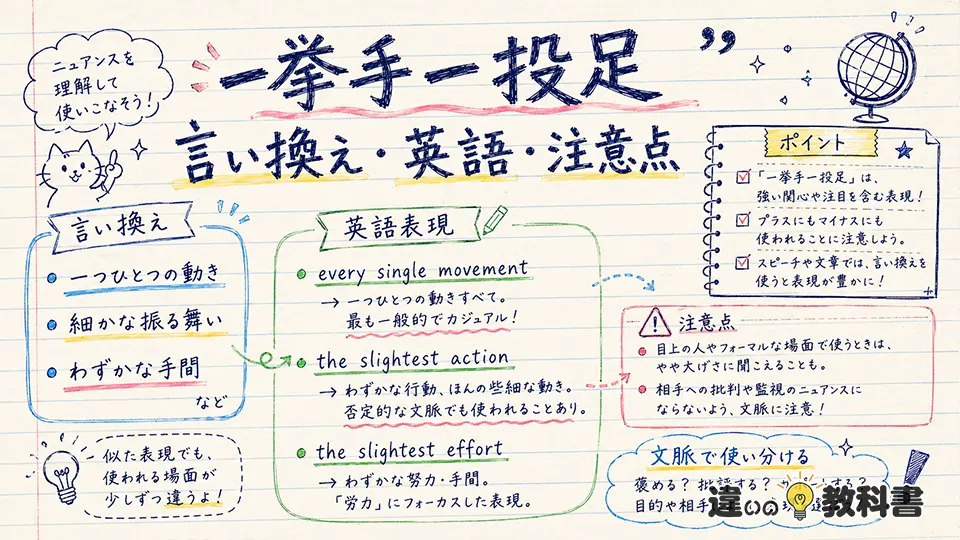 ニュアンスを
理解して
使いこなそう！
一挙手一投足 ”
言い換え・英語・注意点
言い換え
一つひとつの動き
細かな振る舞い
わずかな手間
など
似た表現でも、
使われる場面が
少しずつ違うよ！
英語表現
every single movement
→ 一つひとつの動きすべて。
最も一般的でカジュアル！
the slightest action
→ わずかな行動、ほんの些細な動き。
否定的な文脈でも使われることあり。
the slightest effort
→ わずかな努力・手間。
「労力」にフォーカスした表現。
ポイント
「一挙手一投足」は、
強い関心や注目を含む表現！
プラスにもマイナスにも
使われることに注意しよう。
スピーチや文章では、言い換えを
使うと表現が豊かに！
注意点
目上の人やフォーマルな場面で使うときは、
やや大げさに聞こえることも。
相手への批判や監視のニュアンスに
ならないよう、文脈に注意！
文脈で使い分ける
褒める？ 批評する？
目的や相手
違いの教科書